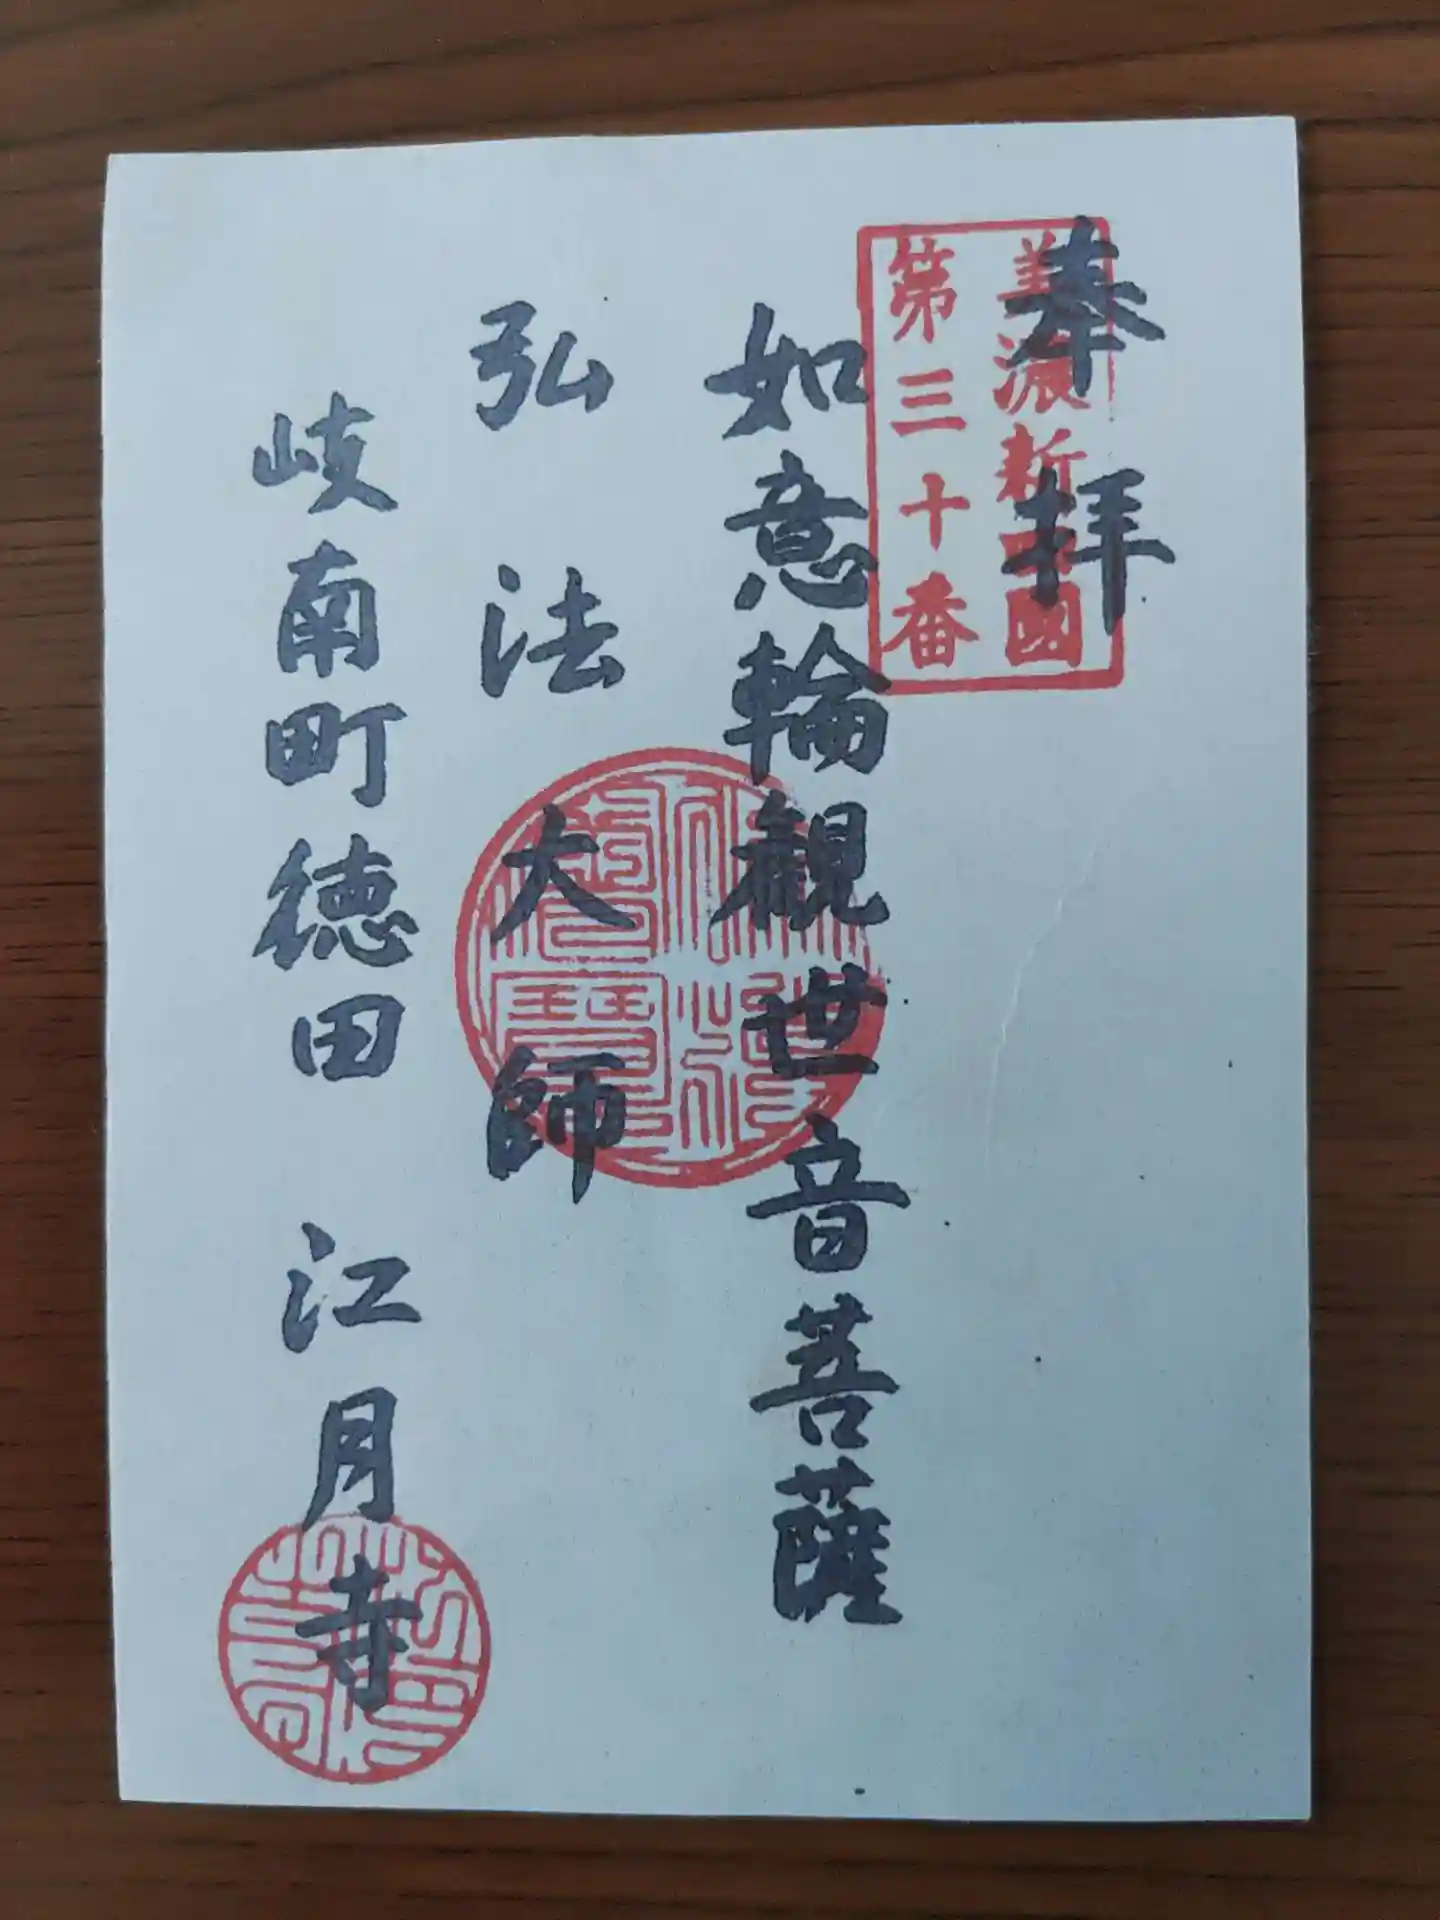 奉拝
美濃新四國
第三十番
如意輪観世音菩薩
弘法大師
岐南町徳田 江月寺